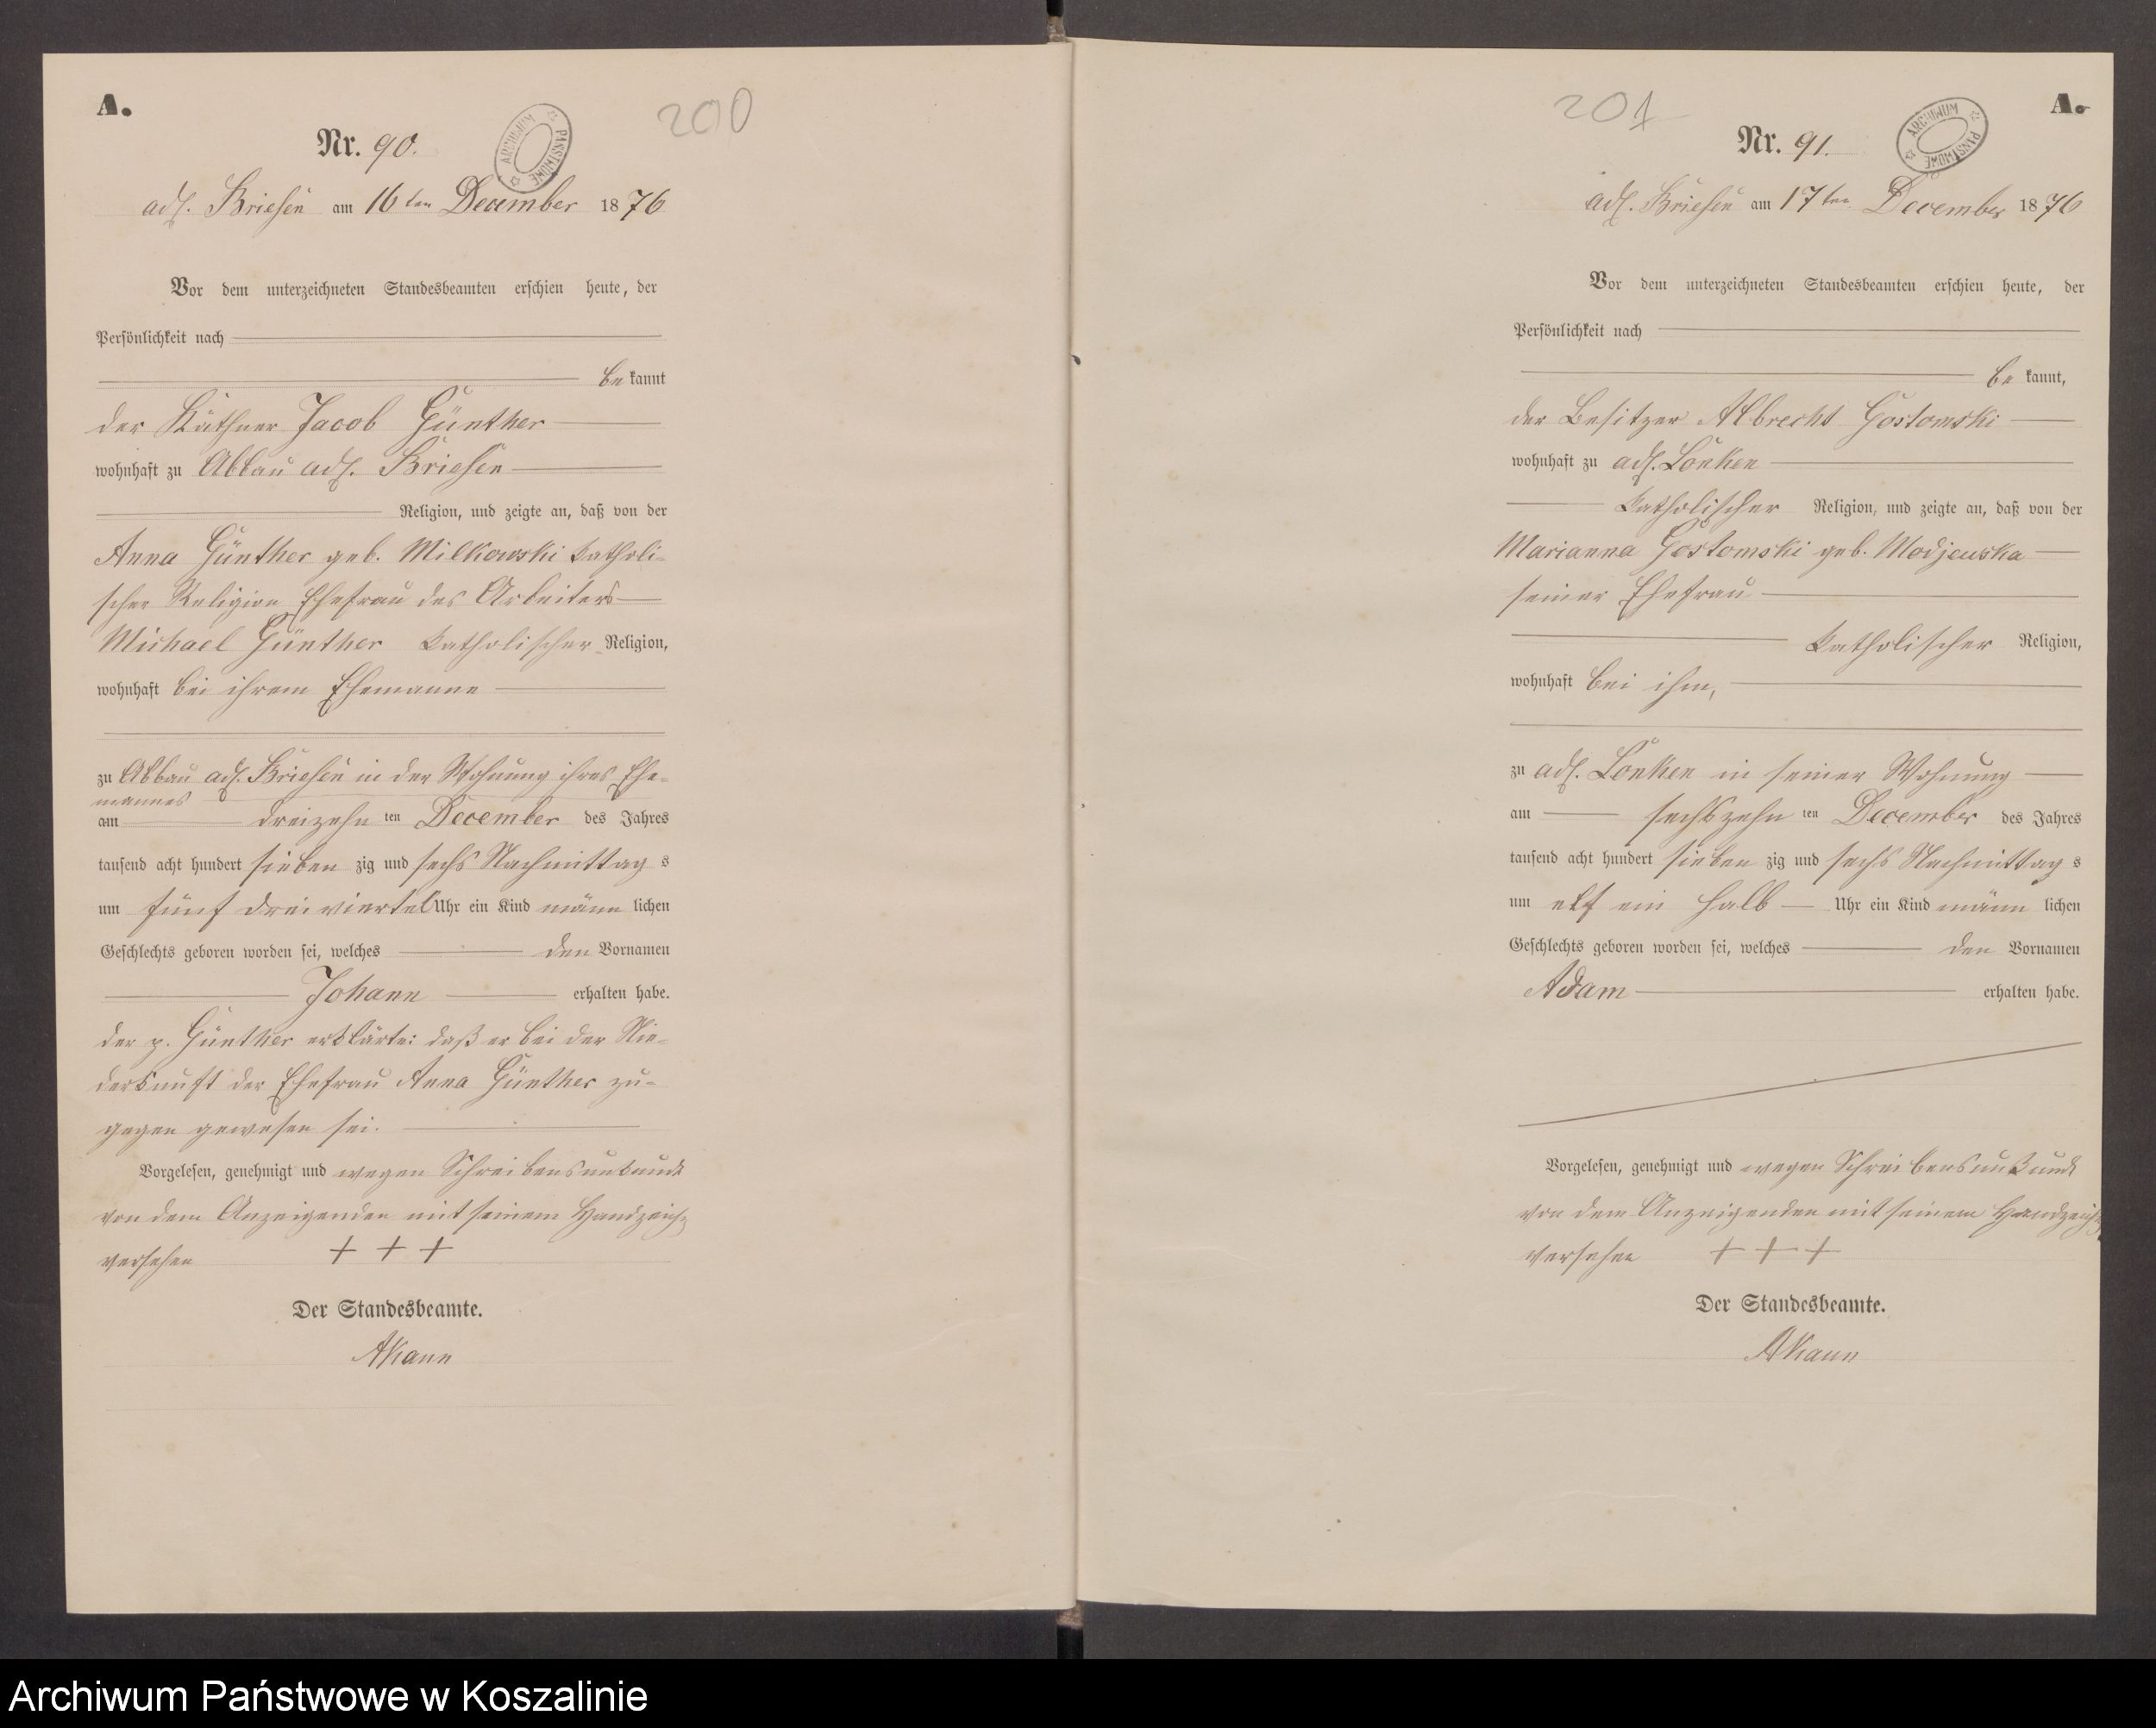 A.
200
Nr. 90.
ARCHIWUM PAŃSTWOWE
adl. Briesen am 16ten December 1876
Vor dem unterzeichneten Standesbeamten erschien heute, der
Persönlichkeit nach
bekannt
der Käthner Jacob Günther
wohnhaft zu Abbau adl. Briesen
Religion, und zeigte an, daß von der
Anna Günther geb. Milkowski katholi-
scher Religion Ehefrau des Arbeiters
Michael Günther katholischer Religion,
wohnhaft bei ihrem Ehemanne
zu Abbau adl. Briesen in der Wohnung ihres Ehe-
mannes
am dreizehn ten December des Jahres
tausend acht hundert sieben zig und sechs Nachmittag s
um fünf dreiviertel Uhr ein Kind männ lichen
Geschlechts geboren worden sei, welches den Vornamen
Johann erhalten habe.
der p. Günther erklärte: daß er bei der Nie-
derkunft der Ehefrau Anna Günther zu-
gegen gewesen sei.
Vorgelesen, genehmigt und wegen Schreibensunkunde
von dem Anzeigenden mit seinem Handzeich
versehen + + +
Der Standesbeamte.
AKann
201
A.
Nr. 91.
ARCHIWUM PAŃSTWOWE
adl. Briesen am 17ten December 1876
Vor dem unterzeichneten Standesbeamten erschien heute, der
Persönlichkeit nach
bekannt,
der Besitzer Albrecht Gostomski
wohnhaft zu adl. Lonken
katholischer Religion, und zeigte an, daß von der
Marianna Gostomski geb. Modjewska
seiner Ehefrau
katholischer Religion,
wohnhaft bei ihm,
zu adl. Lonken in seiner Wohnung
am sechszehn ten December des Jahres
tausend acht hundert sieben zig und sechs Nachmittag s
um elf ein halb Uhr ein Kind männ lichen
Geschlechts geboren worden sei, welches den Vornamen
Adam erhalten habe.
Vorgelesen, genehmigt und wegen Schreibensunkunde
von dem Anzeigenden mit seinem Handzeich
versehen + + +
Der Standesbeamte.
AKann
Archiwum Państwowe w Koszalinie